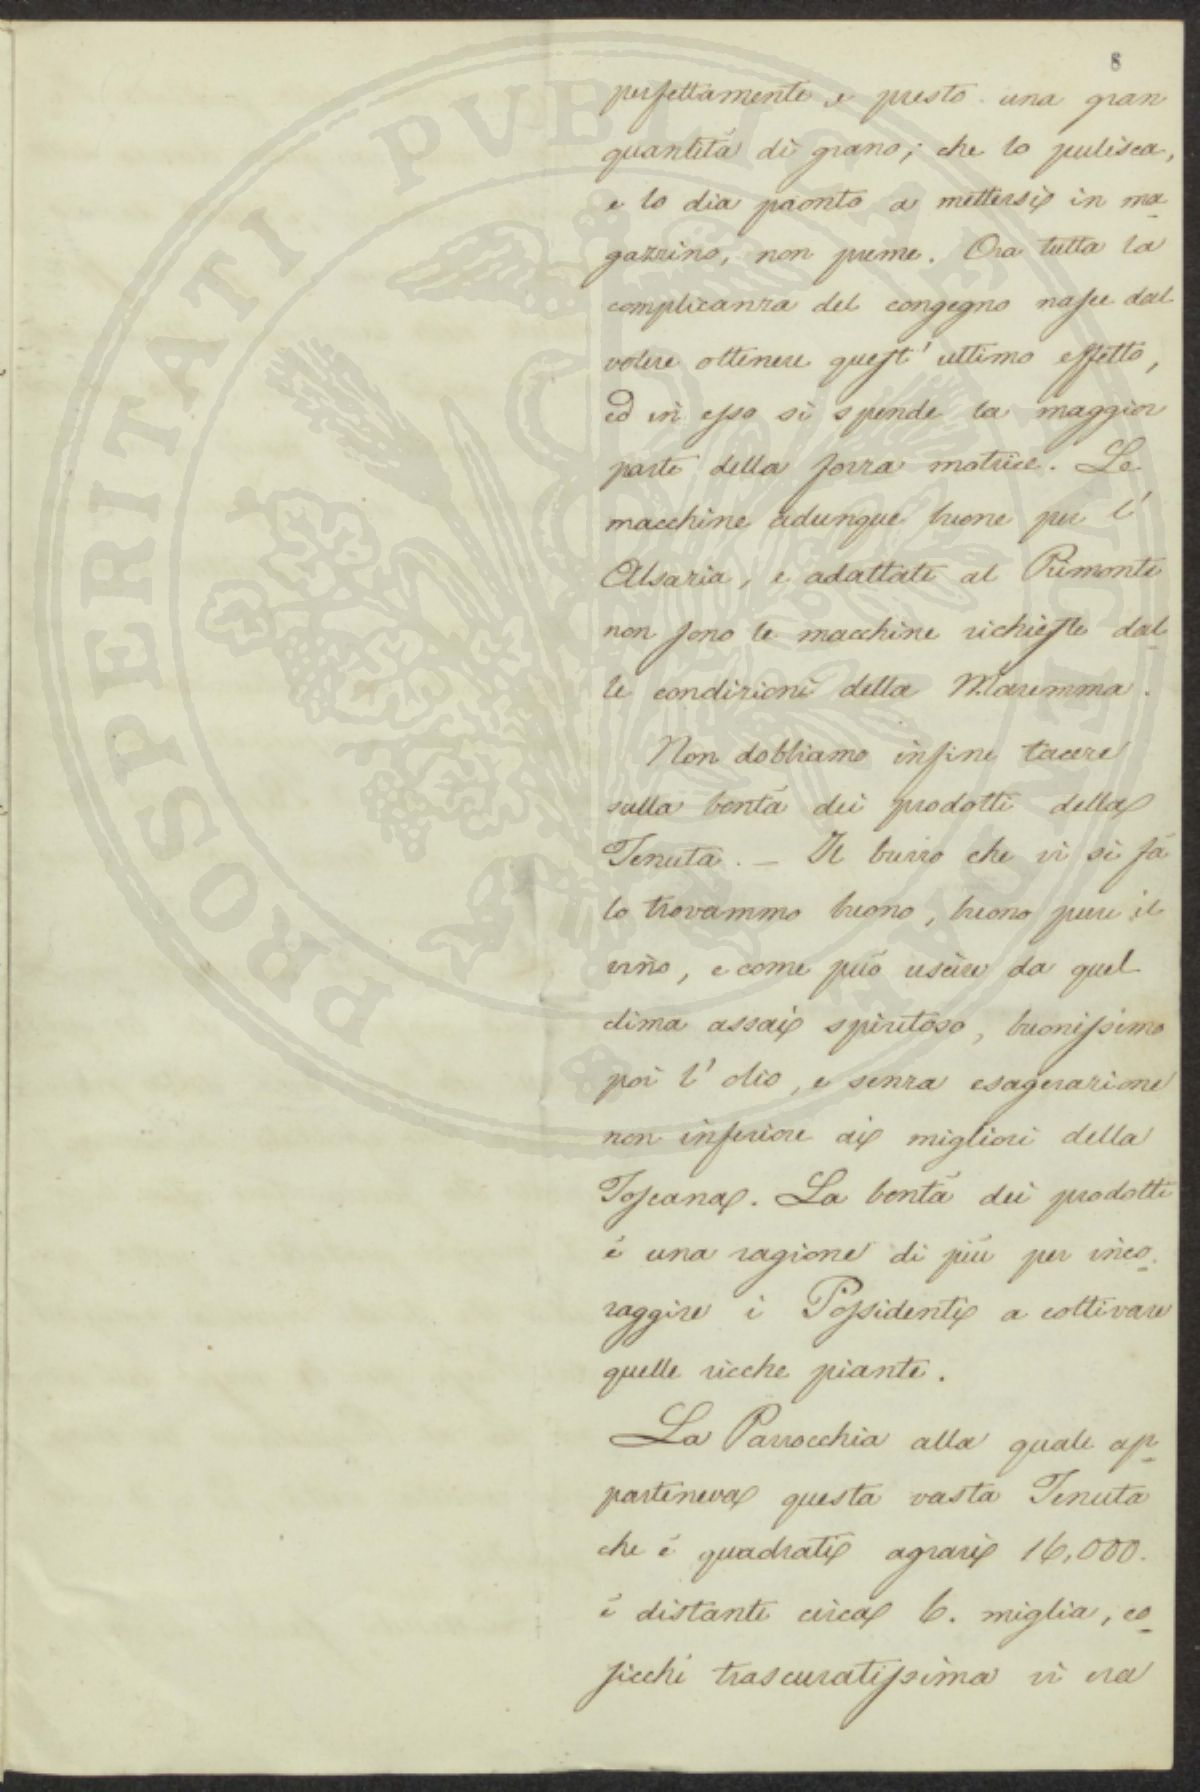 8
perfettamente e presto una gran
quantità di grano; che lo pulisca,
e lo dia pronto a mettersi in ma-
gazzino, non preme. Ora tutta la
complicanza del congegno nasce dal
volere ottenere quest' ultimo effetto,
ed in esso si spende la maggior
parte della forza motrice. Le
macchine adunque buone per l'
Alsazia, e adattate al Piemonte
non sono le macchine richieste dal-
le condizioni della Maremma.
Non dobbiamo infine tacere
sulla bontà dei prodotti della
Tenuta. — Il burro che vi si fà
lo trovammo buono, buono pure il
vino, e come può uscire da quel
clima assai spiritoso, buonissimo
poi l' olio, e senza esagerazione
non inferiore ai migliori della
Toscana. La bontà dei prodotti
è una ragione di più per inco-
raggire i Possidenti a coltivare
quelle ricche piante.
La Parrocchia alla quale ap-
parteneva questa vasta Tenuta
che è quadrati agrari 16,000.
è distante circa 6. miglia, co-
sicchè trascuratissima vi era
PROSPERITATI PUBLICAE AUGENDAE